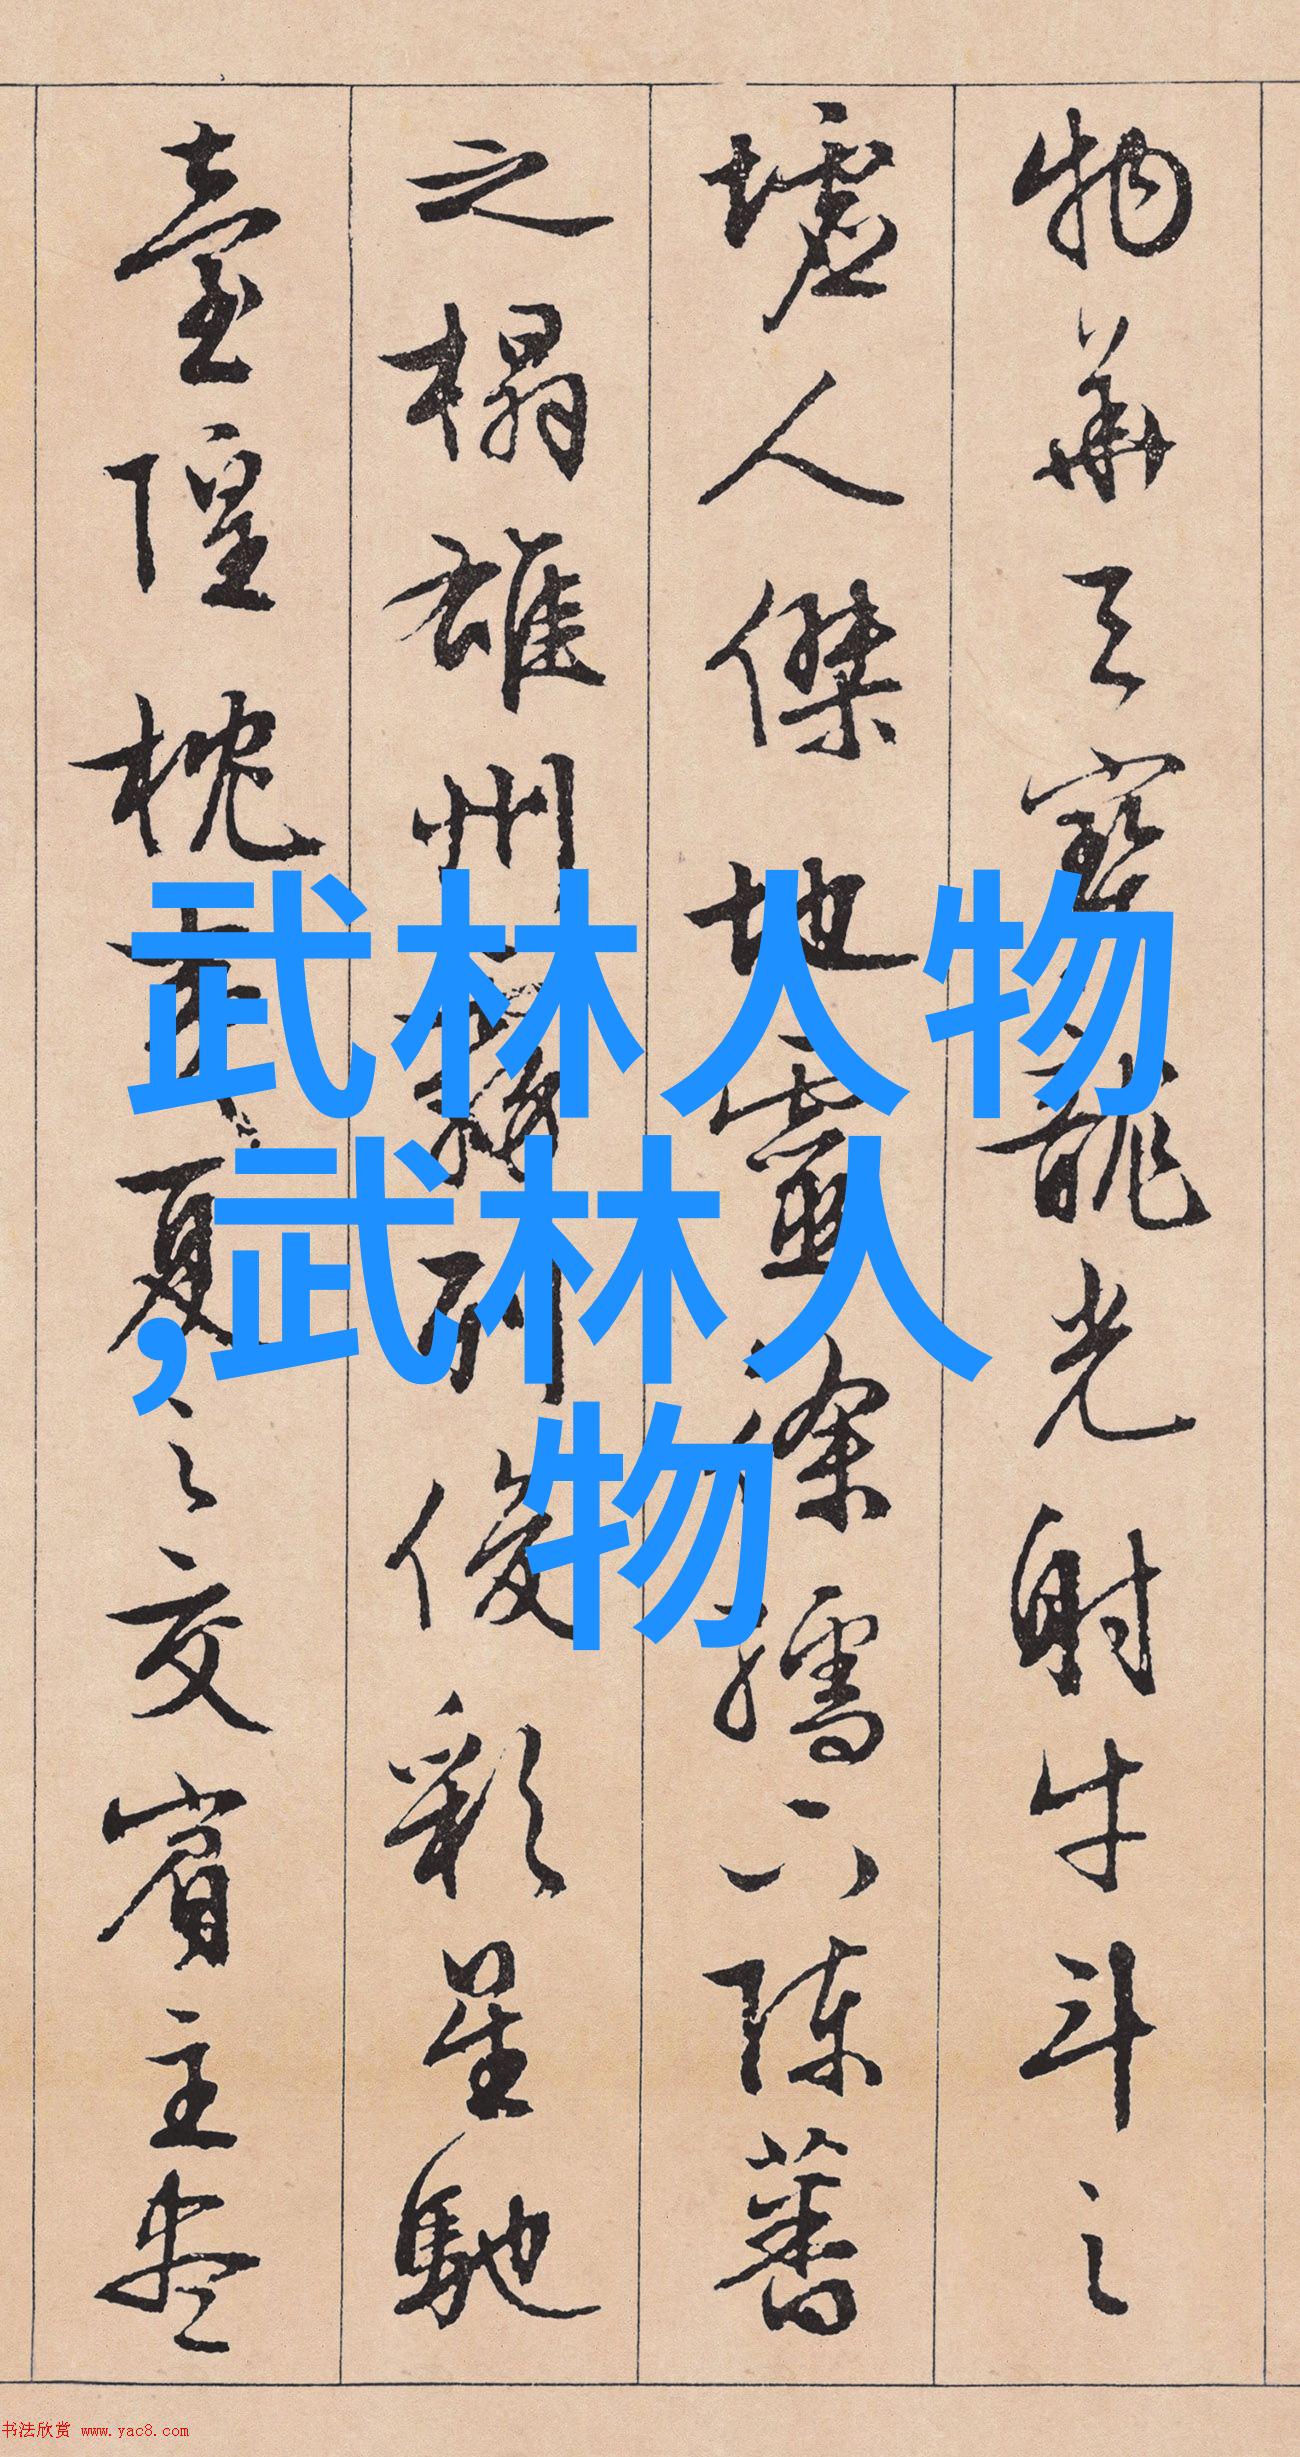 物华天宝龙光射牛斗之
墟人傑地靈徐孺下陈蕃
之榻雄州雾列俊彩星驰
臺隍枕夷夏之交賓主尽
武林人物
,武林人
物
书法欣赏 www.yac8.com